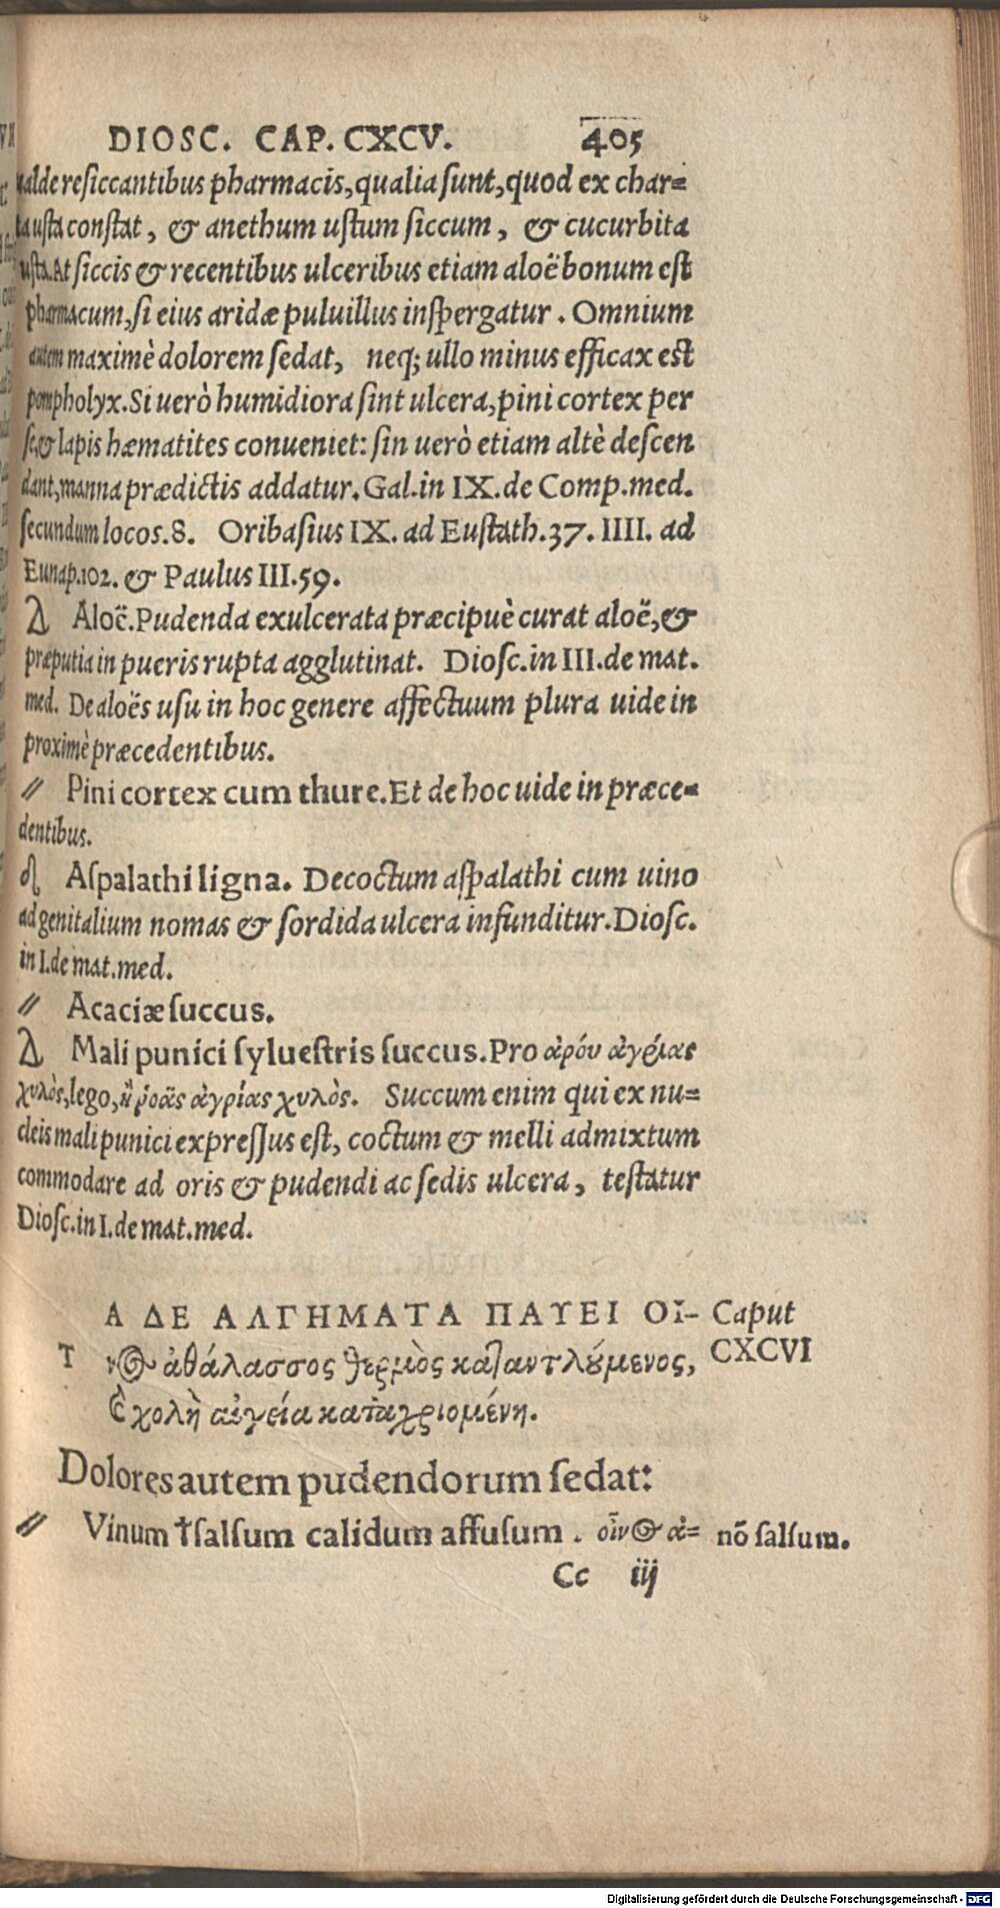 DIOSC. CAP. CXCV. 405
ualde resiccantibus pharmacis, qualia sunt, quod ex char=
ta usta constat, & anethum ustum siccum, & cucurbita
usta. At siccis & recentibus ulceribus etiam aloë bonum est
pharmacum, si eius aridæ puluillus inspergatur. Omnium
autem maximè dolorem sedat, neq; ullo minus efficax est
pompholyx. Si uerò humidiora sint ulcera, pini cortex per
se, & lapis hæmatites conueniet: sin uerò etiam altè descen
dant, manna prædictis addatur. Gal. in IX. de Comp. med.
secundum locos. 8. Oribasius IX. ad Eustath. 37. IIII. ad
Eunap. 102. & Paulus III. 59.
Aloë. Pudenda exulcerata præcipuè curat aloë, &
præputia in pueris rupta agglutinat. Diosc. in III. de mat.
med. De aloës usu in hoc genere affectuum plura uide in
proximè præcedentibus.
// Pini cortex cum thure. Et de hoc uide in præce=
dentibus.
Aspalathi ligna. Decoctum aspalathi cum uino
ad genitalium nomas & sordida ulcera infunditur. Diosc.
in I. de mat. med.
// Acaciæ succus.
Mali punici syluestris succus. Pro ἀρόυ ἀγρίας
χυλὸς, lego, ἢ ῥοᾶς ἀγρίας χυλὸς. Succum enim qui ex nu=
cleis mali punici expressus est, coctum & melli admixtum
commodare ad oris & pudendi ac sedis ulcera, testatur
Diosc. in I. de mat. med.
Τ Α ΔΕ ΑΛΓΗΜΑΤΑ ΠΑΥΕΙ ΟΙ- Caput
νος ἀθάλασσος θερμὸς καταντλούμενος, CXCVI
ἢ χολὴ αἰγεία καταχριομένη.
Dolores autem pudendorum sedat:
// Vinum †salsum calidum affusum. οἶνος ἀ= nō salsum.
Cc iij
Digitalisierung gefördert durch die Deutsche Forschungsgemeinschaft - DFG